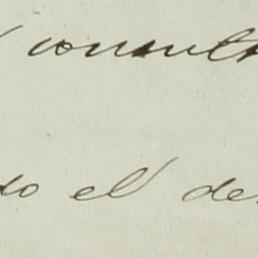 consult
do el de